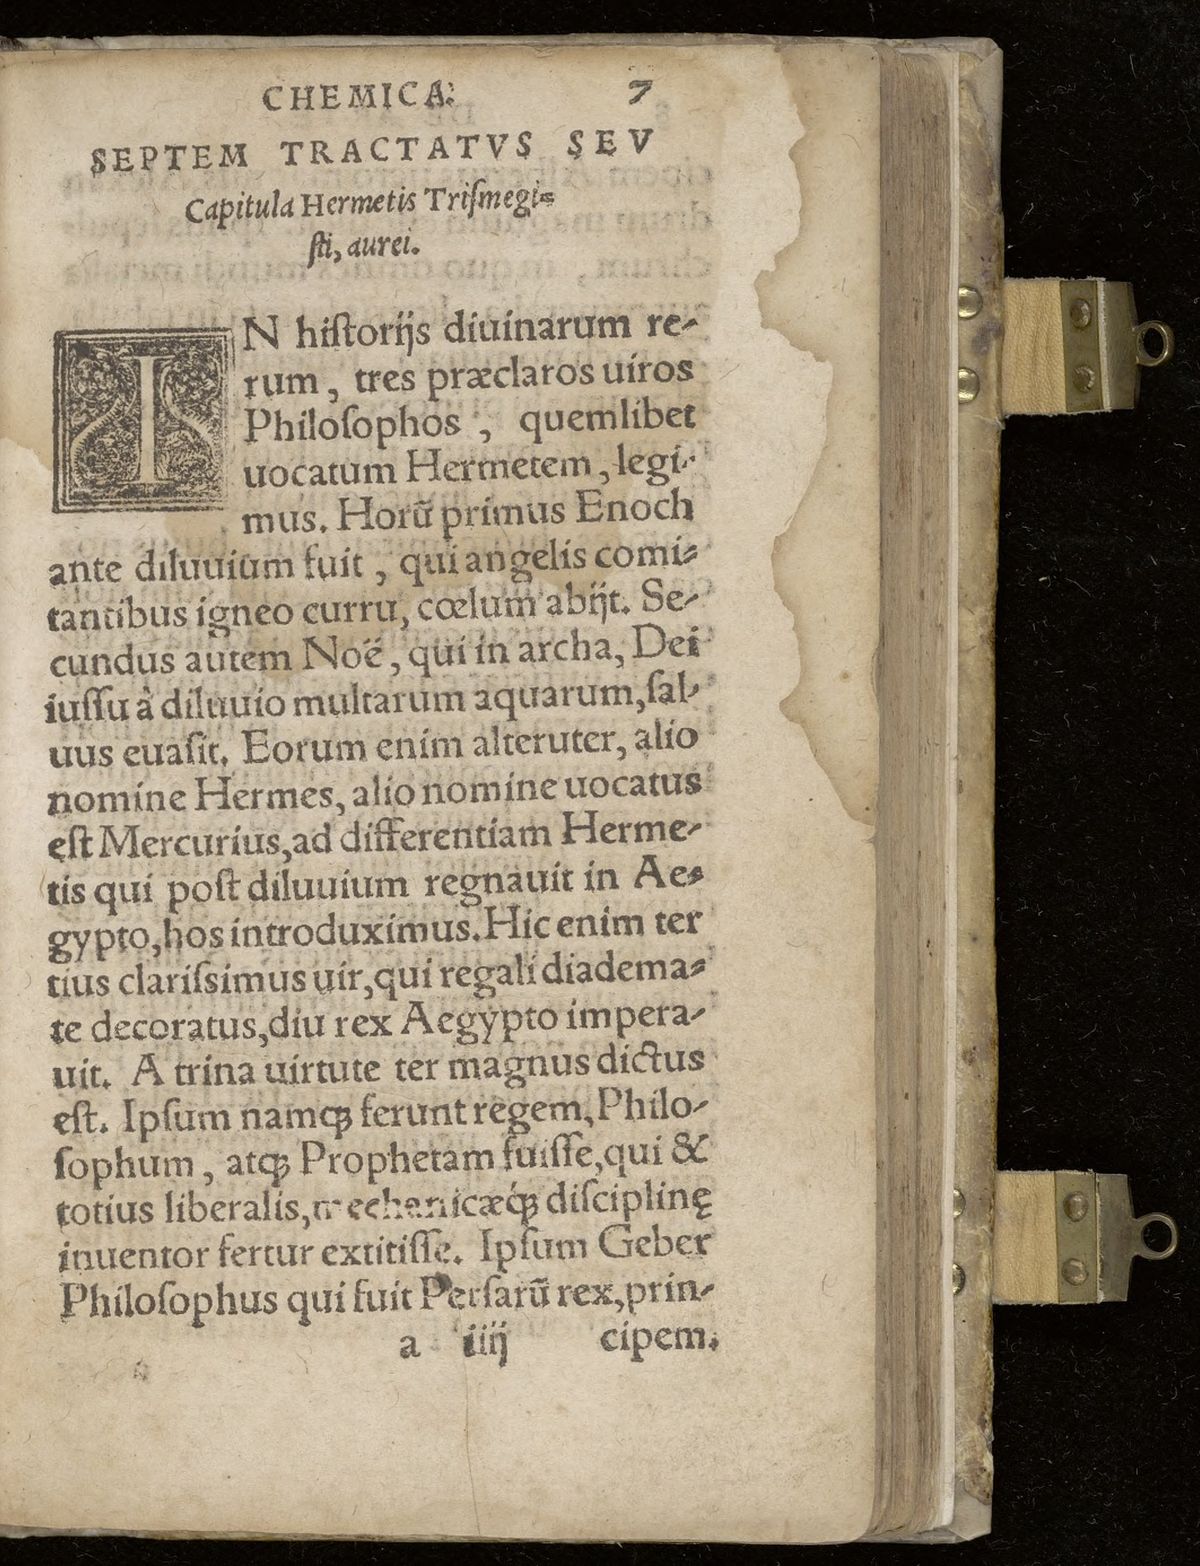 CHEMICA. 7
SEPTEM TRACTATVS SEV
Capitula Hermetis Triſmegi=
ſti, aurei.
IN hiſtorijs diuinarum re-
rum, tres præclaros uiros
Philoſophos, quemlibet
uocatum Hermetem, legi-
mus. Horū primus Enoch
ante diluuium fuit, qui angelis comi-
tantibus igneo curru, cœlum abijt. Se-
cundus autem Noë, qui in archa, Dei
iuſſu à diluuio multarum aquarum, ſal-
uus euaſit. Eorum enim alteruter, alio
nomine Hermes, alio nomine uocatus
eſt Mercurius, ad differentiam Herme-
tis qui poſt diluuium regnauit in Ae-
gypto, hos introduximus. Hic enim ter
tius clariſsimus uir, qui regali diadema-
te decoratus, diu rex Aegypto impera-
uit. A trina uirtute ter magnus dictus
eſt. Ipſum namq́ꝫ ferunt regem, Philo-
ſophum, atq́ꝫ Prophetam fuiſſe, qui &
totius liberalis, mechanicæq́ꝫ diſciplinę
inuentor fertur extitiſſe. Ipſum Geber
Philoſophus qui fuit Perſarū rex, prin-
a iiij cipem.